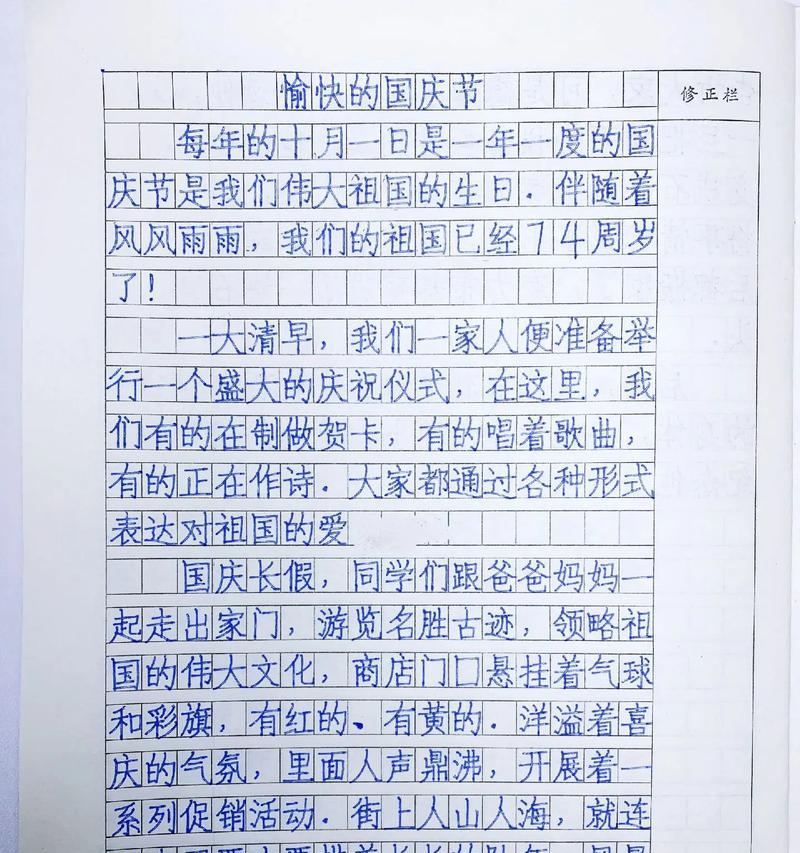 愉快的国庆节
修正栏
每年的十月一日是一年一度的国
庆节是我们伟大祖国的生日．伴随着
风风雨雨，我们的祖国已经74周岁
了！
一大清早，我们一家人便准备举
行一个盛大的庆祝仪式，在这里，我
们有的在制做贺卡，有的唱着歌曲，
有的正在作诗．大家都通过各种形式
表达对祖国的爱
国庆长假，同学们跟爸爸妈妈一
起走出家门，游览名胜古迹，领略祖
国的伟大文化，商店门口悬挂着气球
和彩旗，有红的、有黄的．洋溢着喜
庆的气氛，里面人声鼎沸，开展着一
系列促销活动．街上人山人海，就连